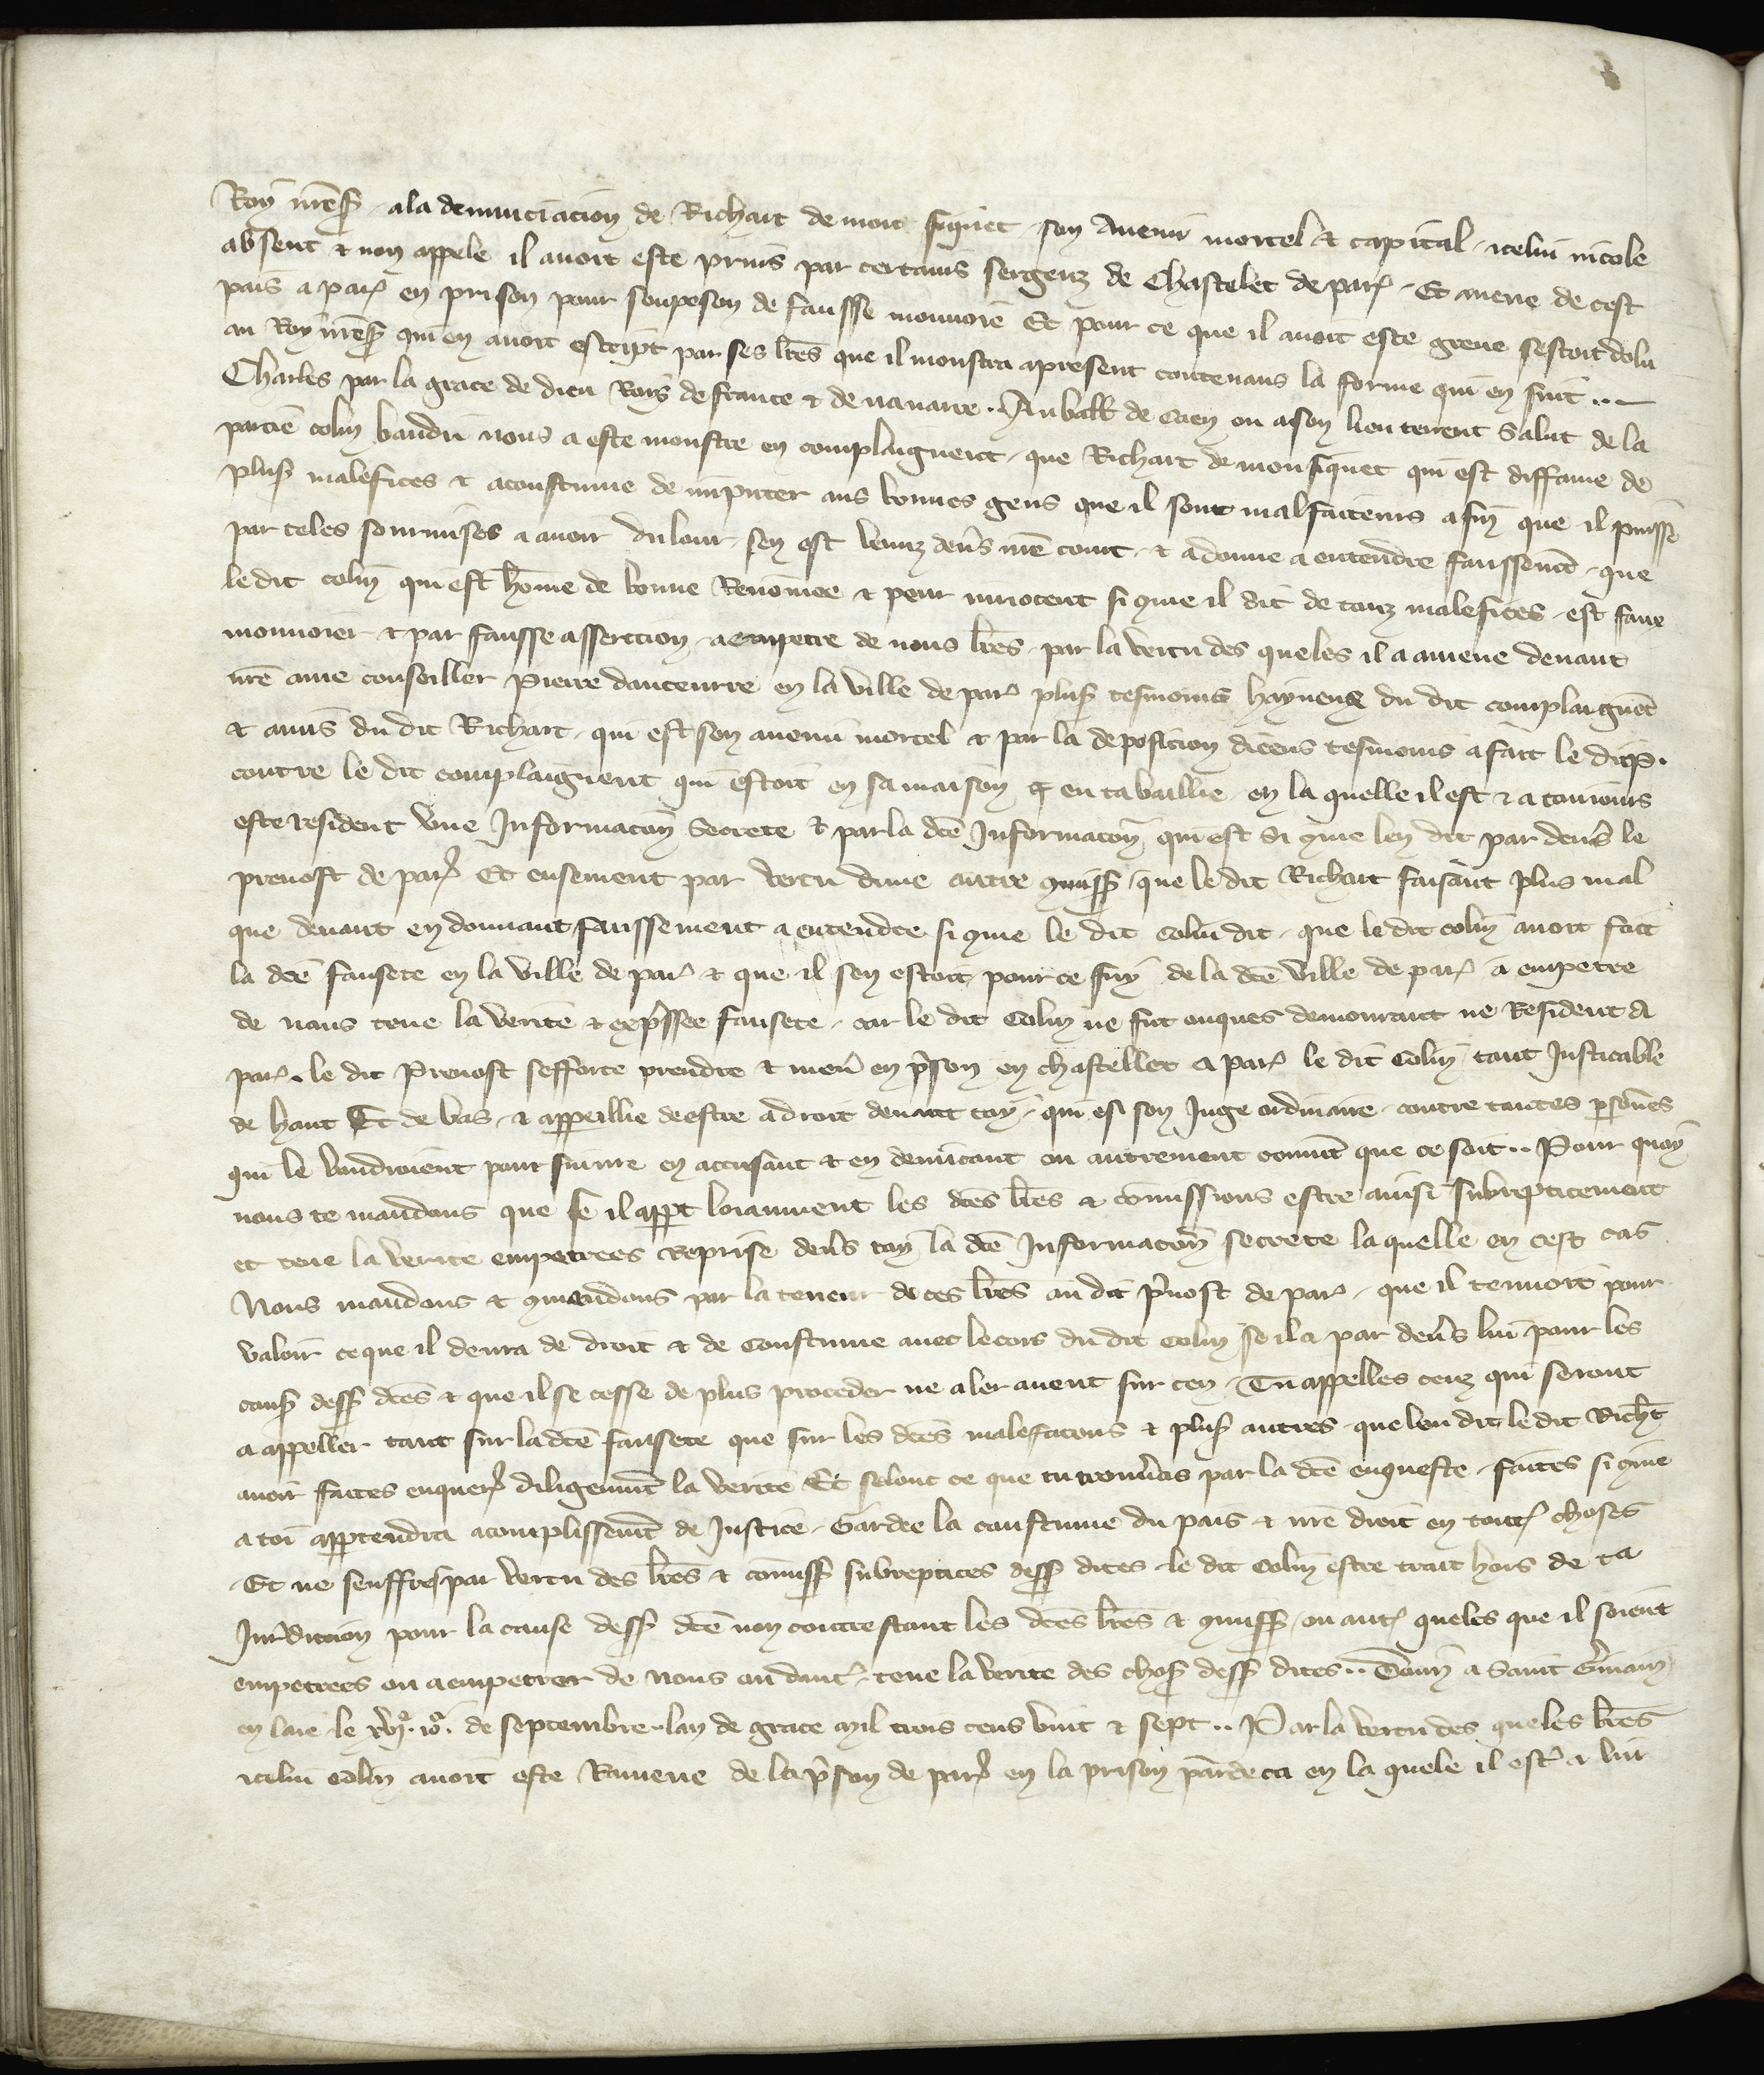 Roy nr̃es̃ . a la denunciacion de Richart de mont siquet . son Anemi mortel & capital . icelui nicole
absent & non appele il avoit este prins par certains sergenz de Chastelet de par̃ . Et mene de cest
pais a par̃ en prison pour soupeson de fausse monnoie Et pour ce que il avoit este greve sestoit dolu
au Roy nr̃es̃ qui en avoit escript par ses lr̃es que il monstra a present contenans la forme qui en suit ..
Charles par la grace de dieu Roys de france & de navarre .. Au ball̃ de Caen ou a son lieu tenent Salut de la
partie colin baudri nous a este monstre en complaignent . que Richart de monsiquet qui est diffame de
plus̃ malefices & acoustume de imputer aus bonnes gens que il sont malfaiteurs a fin que il puisse
par celes sourmises a avoir du lour . sen est venuz dev̾s nr̃e court . & a donne a entendre faussemt̃ . que
le dit colin qui est hom̃e de bonne Renom̃ee & pour innocent si cõme il dit de touz malefices . est faux
monnoier & par fausse assertcion . a empetre de nous lr̃es . par la vertu des queles il a amene devant
nr̃e ame conseiller Pierre dauceurre en la ville de par̃ plus̃ tesmoins hayneux du dit complaignẽt
& amis du dit Richart . qui est son anemi mortel & par la deposicion diceus tesmoins a fait le dit P.
contre le dit complaignent qui estoit en sa maison & en ta baillie . en la quelle il est & a touiours
este resident une Informacõn Secrete & par la dc̃e Informacõn qui est si cõme len dit par dev̾s le
prevost de par̃ Et ensement par vertu dune autre cõmiss̃ . que le dit Richart faisant plus mal
que devant en donnant faussement a entendre si cõme le dit colin dit . que le dit colin avoit fait
la dc̃e fausete en la ville de par̃ & que il sen estoit pour ce fuy de la dc̃e ville de par̃ a empetre
de nous teue la verite & exp̃ssee fausete . car le dit Colin ne fut onques demourant ne Resident A
par̃ . le dit Prevost sefforce prendre & men̾ en p̃son en chastellet a par̃ le dit Colin tant Justicable
de haut Et de bas . & appeillie de estre a droit devant toy . qui es son Juge ordinaire . contre toutes p̃sonnes
qui le voudroient pour suivre en accusant & en denũcant ou autrement com̃t que ce soit .. Pour quoy
nous te mandons que se il appt loiaument les dc̃es lr̃es & com̃issions estre ainsi subrepticement
et teue la verite empetrees Reprise dev̾s toy la dc̃e Informacõn secrete la quelle en cest cas
Nous mandons & cõmandons par la teneur de ces lr̃es au dit p̾vost de par̃ . que il tenvoit pour
valoir ce que il devra de droit & de Coustume avec le cors du dit Colin se il a par dev̾s lui pour les
caus̃ dess̃ dc̃es & que il se cesse de plus proceder ne aler avent sur cen . Tu appelles ceuz qui seront
a appeller tant sur la dc̃e fausete que sur les dc̃es malefacons & plus̃ autres . que len dit le dit Richt̃
avoir faites enquer̃ diligemmt̃ la verite Et selonc ce que tu trouv̾as par la dc̃e enqueste . faites si cõme
a toi appetendra acomplissemt̃ de Justice . Gardee la coustume du pais & nr̃e droit en tout̃ choses
. Et ne seuffres par vertu des lr̃es & com̃iss̃ subreptices dess̃ dites . le dit Colin estre trait hors de ta
Jur̃dicion pour la cause dess̃ dc̃e non contrestant les dc̃es lr̃es & cõmiss̃ . ou aut̃ queles que il soient
empetrees ou a empetrer de nous ou daut̃ . teue la verite des chos̃ dess̃ dites .. Don̾ a Saint G̾main
en laie le xvij.e io.r de septembre . lan de grace Mil trois cens vint & sept .. Par la vertu des queles lr̃es
icelui Colin avoit este Ramene de la p̾son de par̃ en la prison p̃ deca en la quele il est̃ & lui